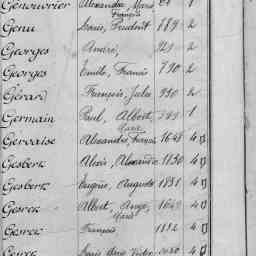 Genouvrier Alexandre, Marie 1
François
Genu Louis, Prudent 889 2
Georges André, 929 2
Georges Emile, Francis 790 2
Gérard François, Jules 990 2
Germain Paul, Albert, 1
Marie
Gervaise Alexandre, François 1648 4
Gesbert Alexis, Alexandre 1830 4
Gesbert Eugène, Auguste 1831 4
Gesrel Albert, Ange, 1649 4
Marie
Gesrel François 1832 4
Gesrel Louis, Marie, Victor 4